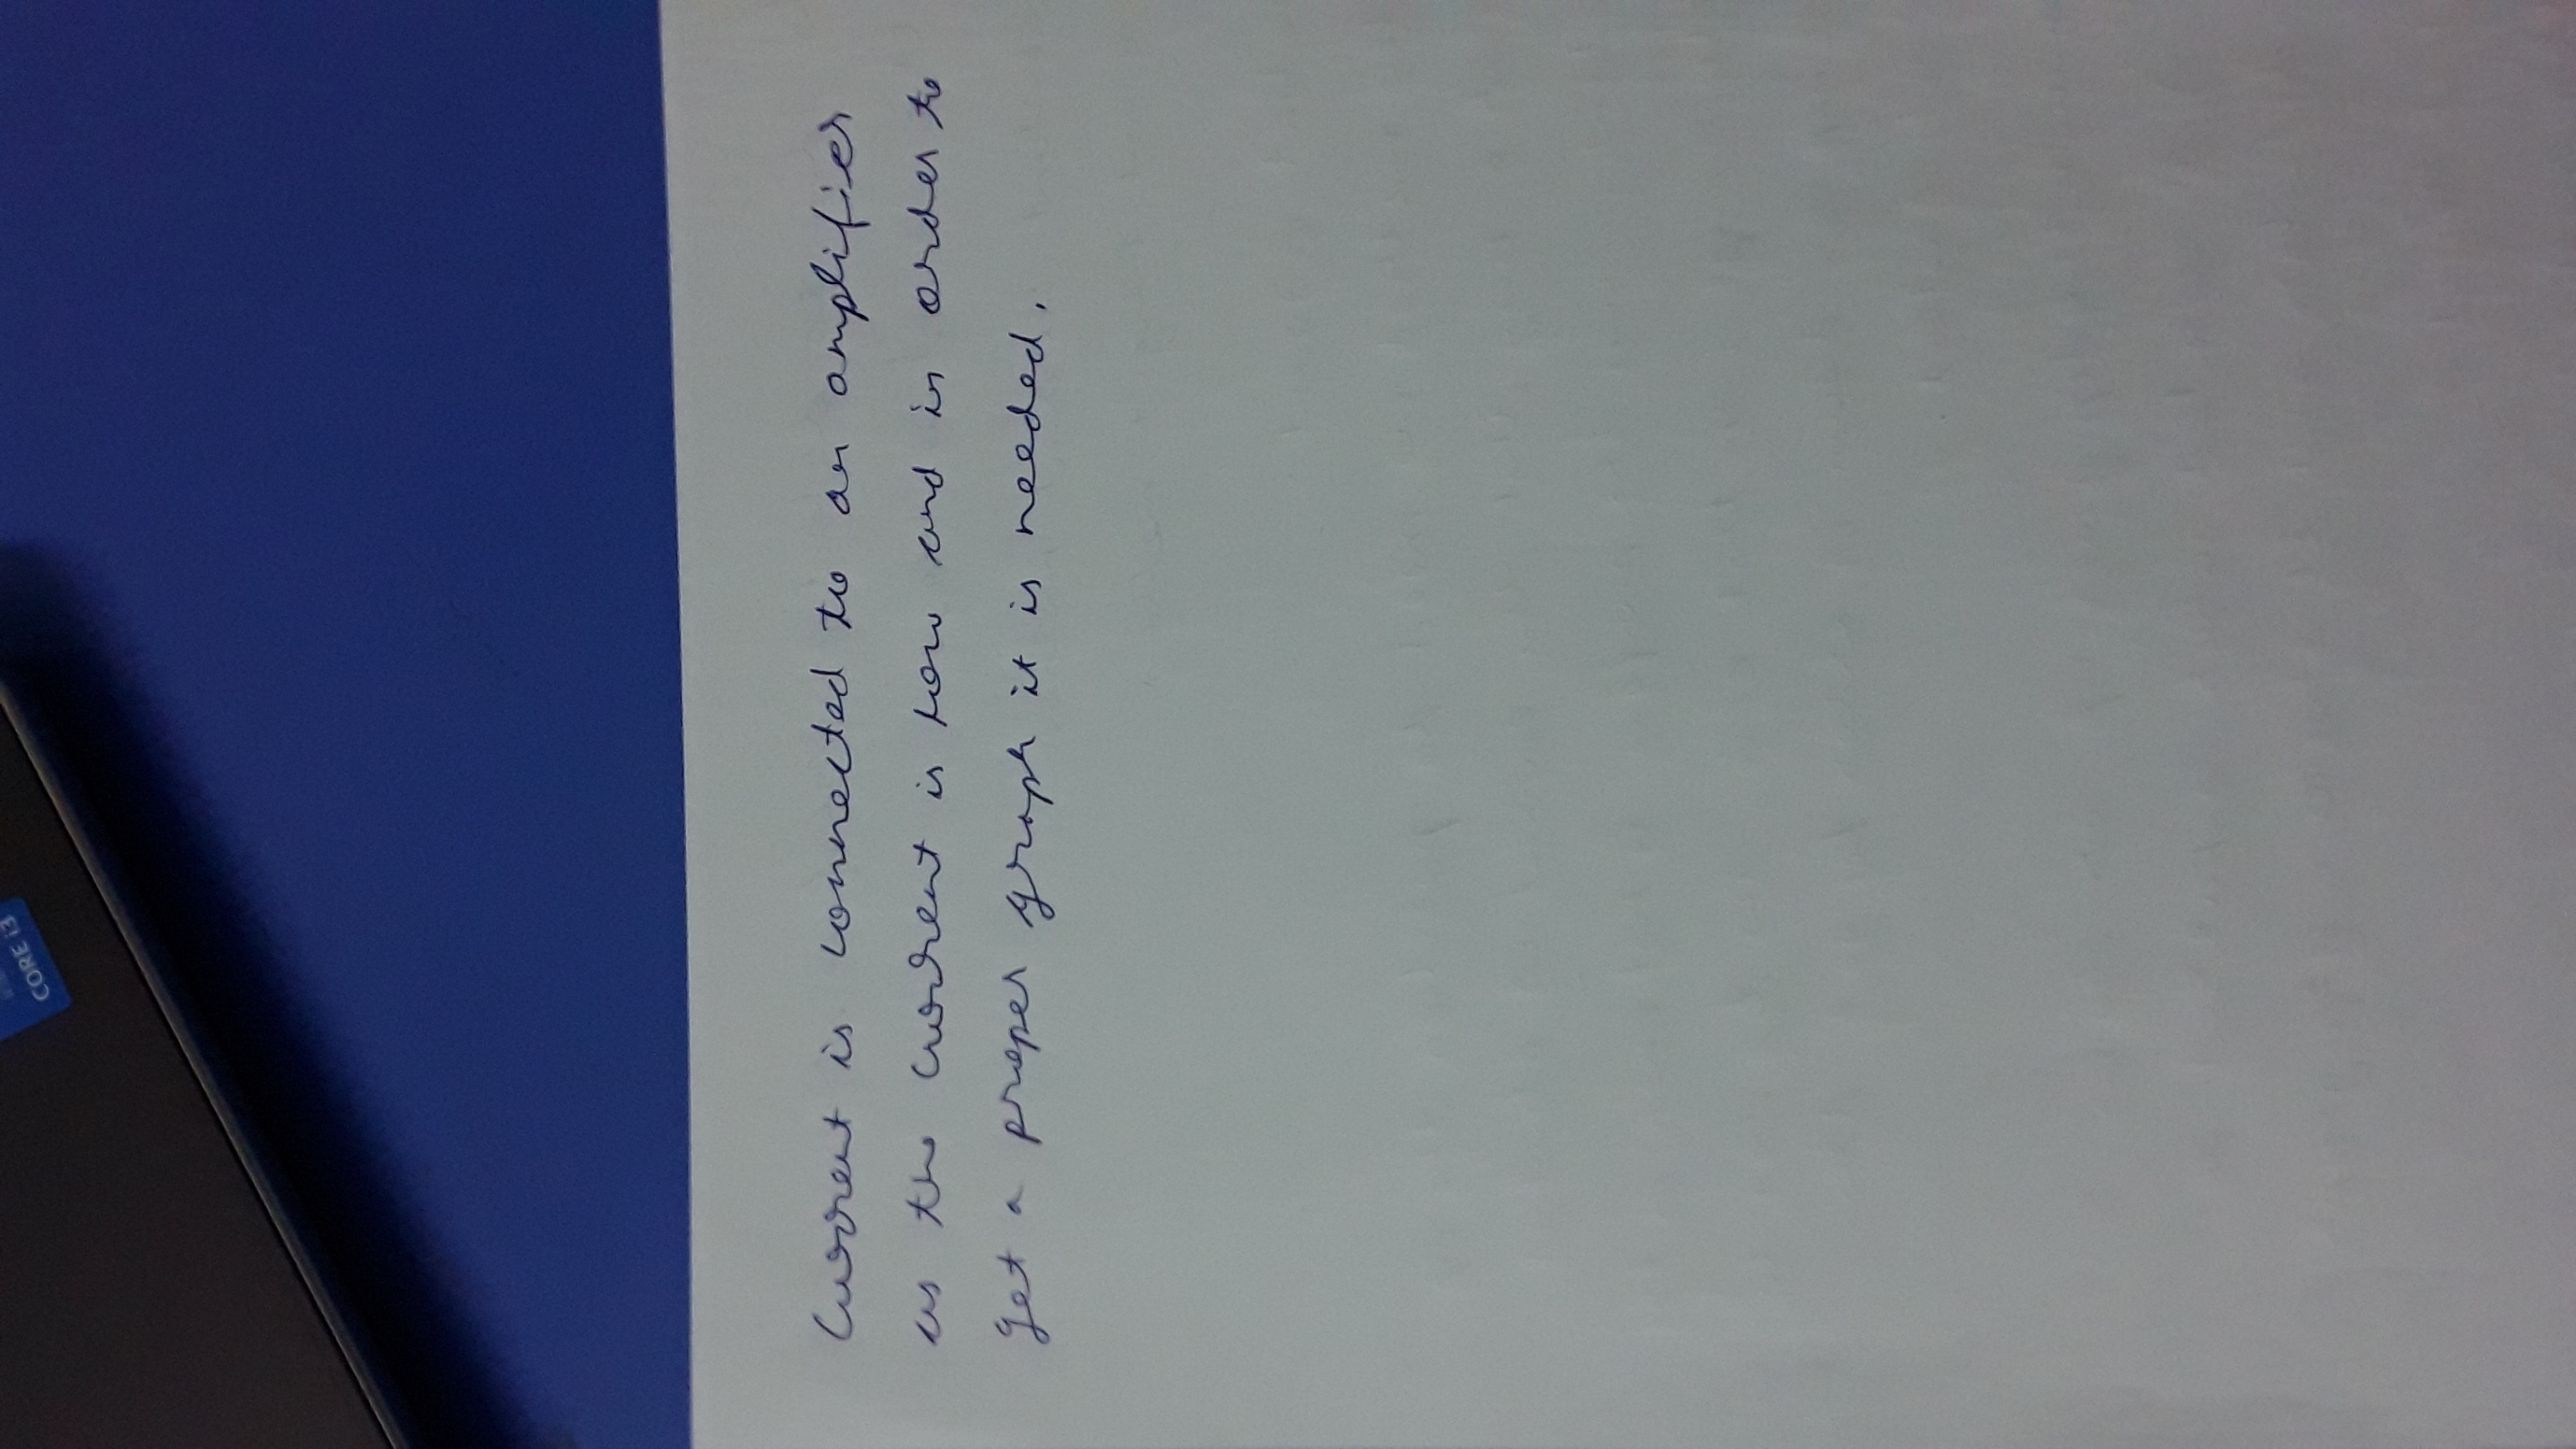 Current is connected to an amplifier
as the current is low and in order to
get a proper graph it is needed.
CORE i3